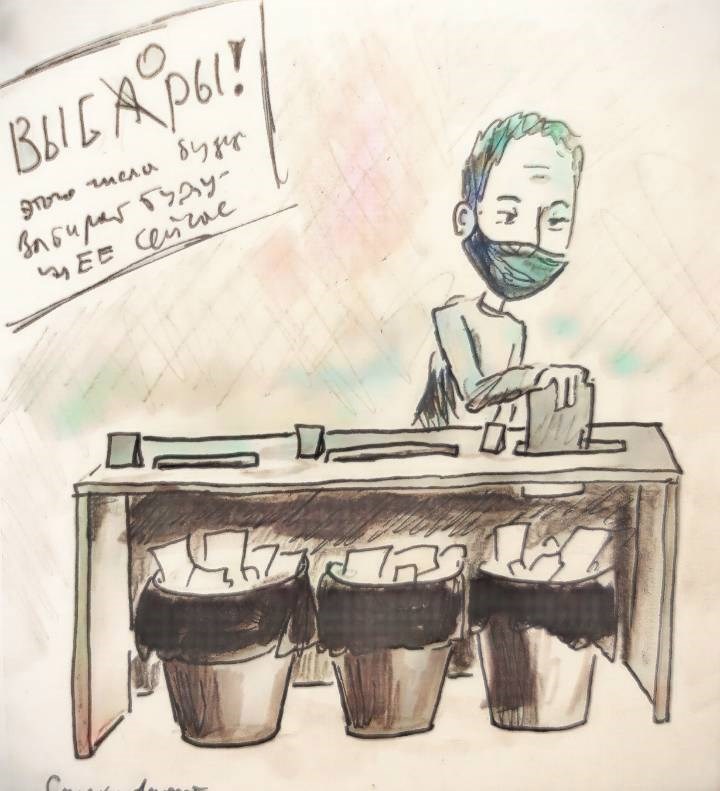 ВЫБОРЫ!
этого числа будут
Выбирай буду-
щЕЕ сейчас